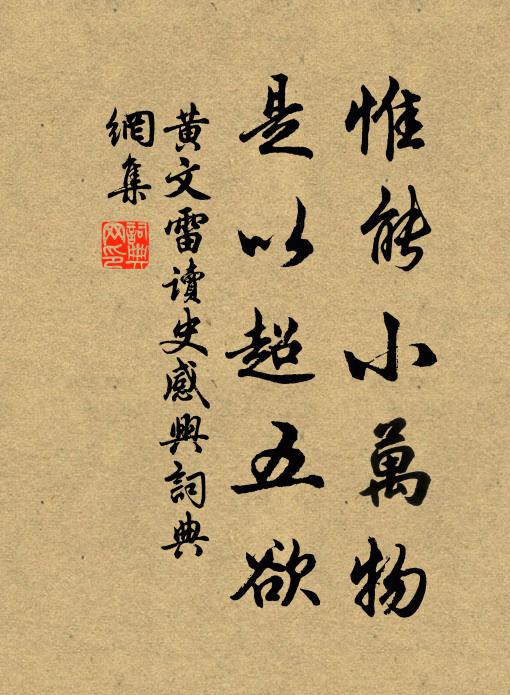 惟能小萬物
是以超五欲
黃文雷讀史感興詞典
網集
詞典
网印